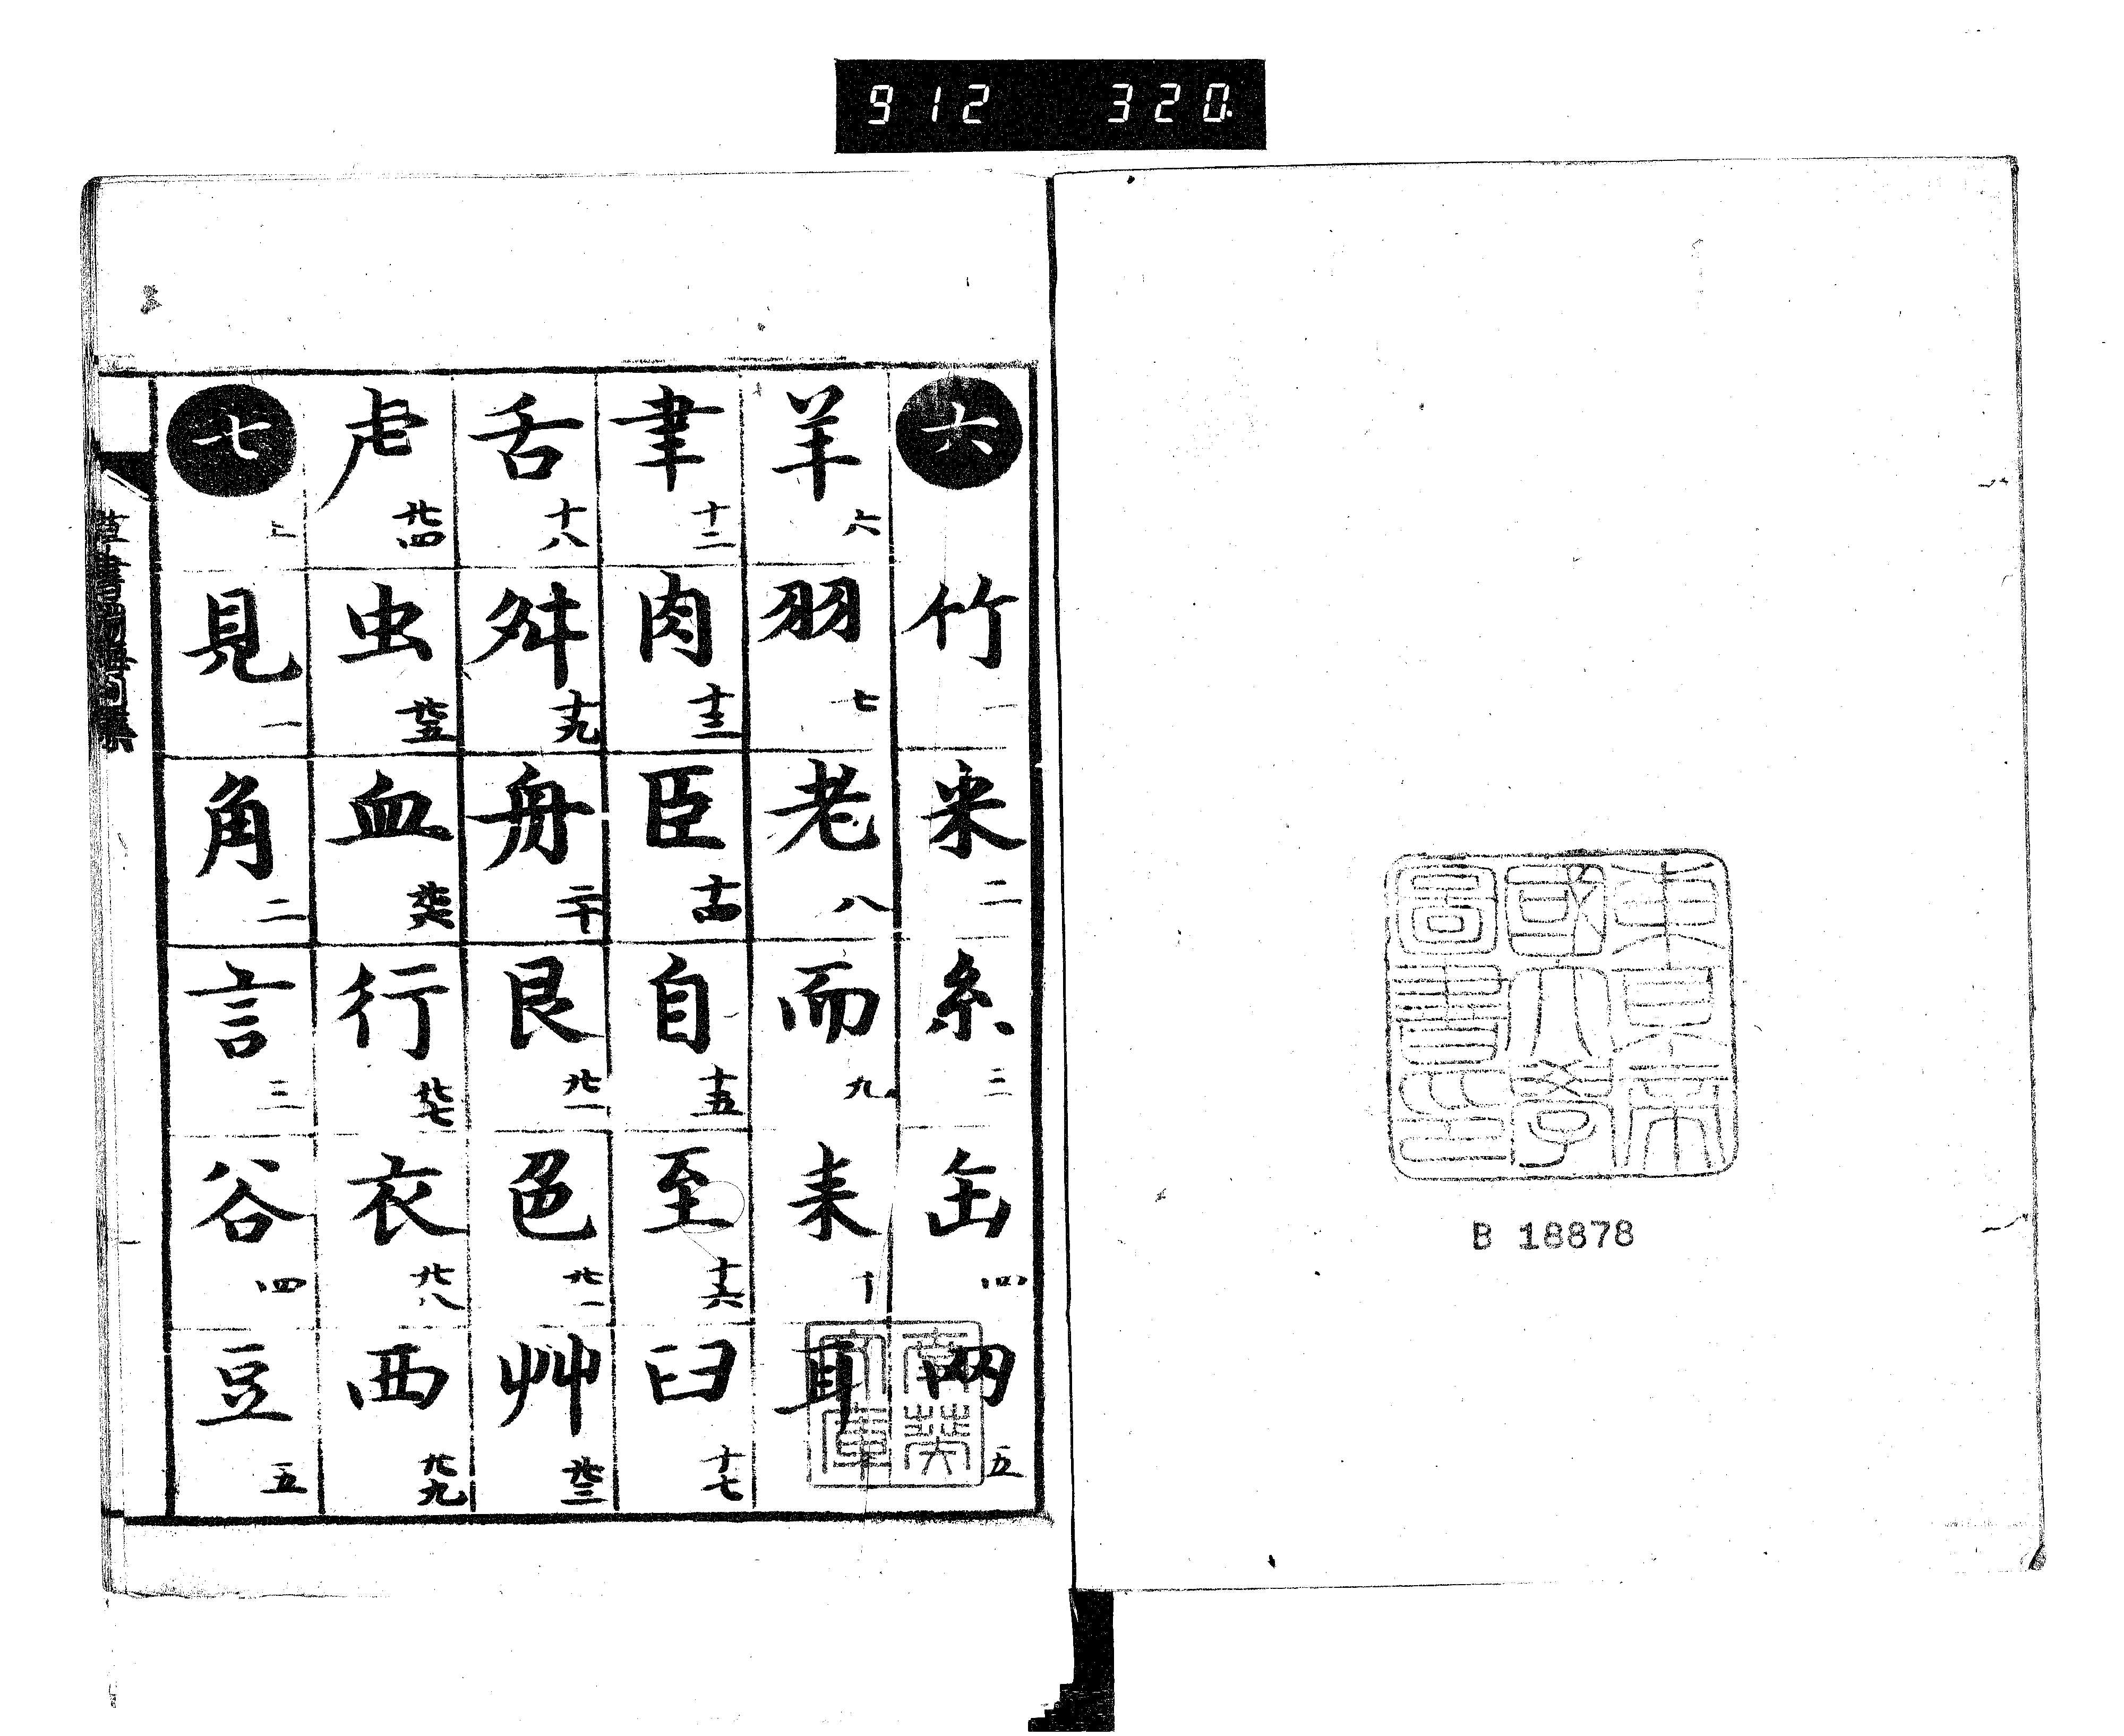 912 320.
東京帝
國大學
圖書印
B 18878
六
竹 一
米 二
糸 三
缶 四
网 五
羊 六
羽 七
老 八
而 九
耒 十
耳
南葵
文庫
聿 十二
肉 十三
臣 十四
自 十五
至 十六
臼 十七
舌 十八
舛 十九
舟 二十
艮 廿一
色 廿一
艸 廿三
虍 廿四
虫 廿五
血 廿六
行 廿七
衣 廿八
西 廿九
七
見 一
角 二
言 三
谷 四
豆 五